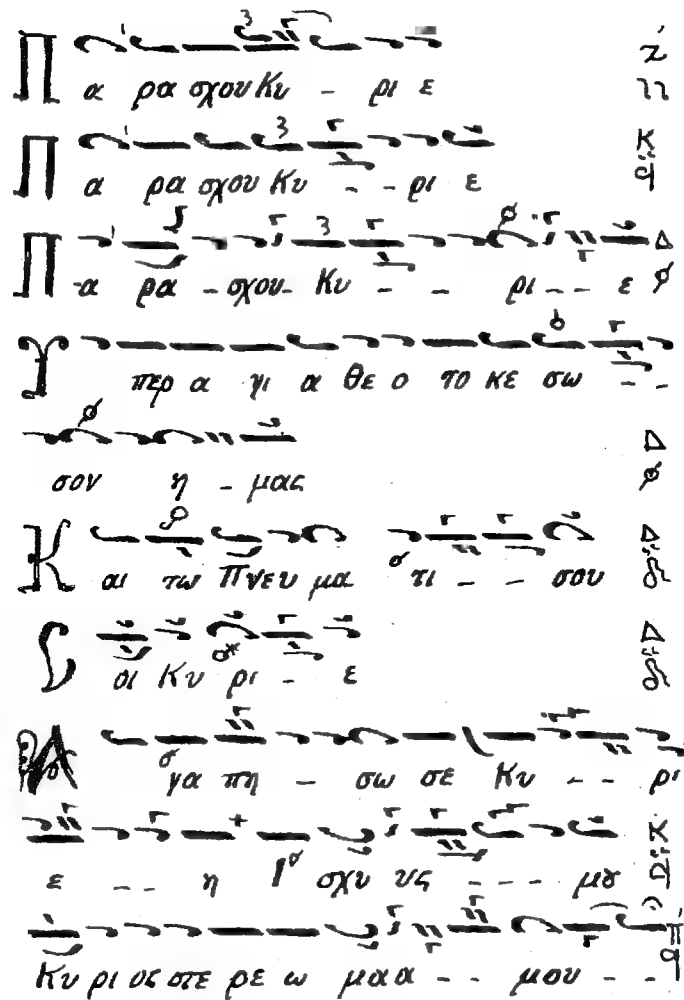 Πα ρα σχου Κυ - ρι ε
Πα ρα σχου Κυ - - ρι ε
Πα ρα - σχου - Κυ - - ρι - - ε
Υ περ α γι α θε ο το κε σω - -
σον η - μας
Και τω Πνευ μα τι - - σου
Σοι Κυ ρι - ε
Α γα πη - σω σε Κυ - - ρι
ε - - η Ισχυ υς - - - μȣ
Κυ ρι ος στε ρε ω μα α - - μου - -